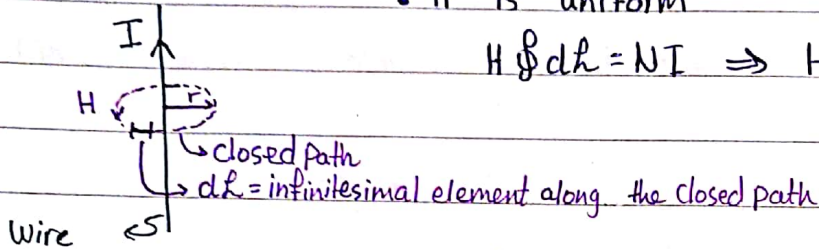 is uniform
I
H ∮ dℓ = NI ⇒ H
H
r
closed path
dℓ = infinitesimal element along the closed path
wire